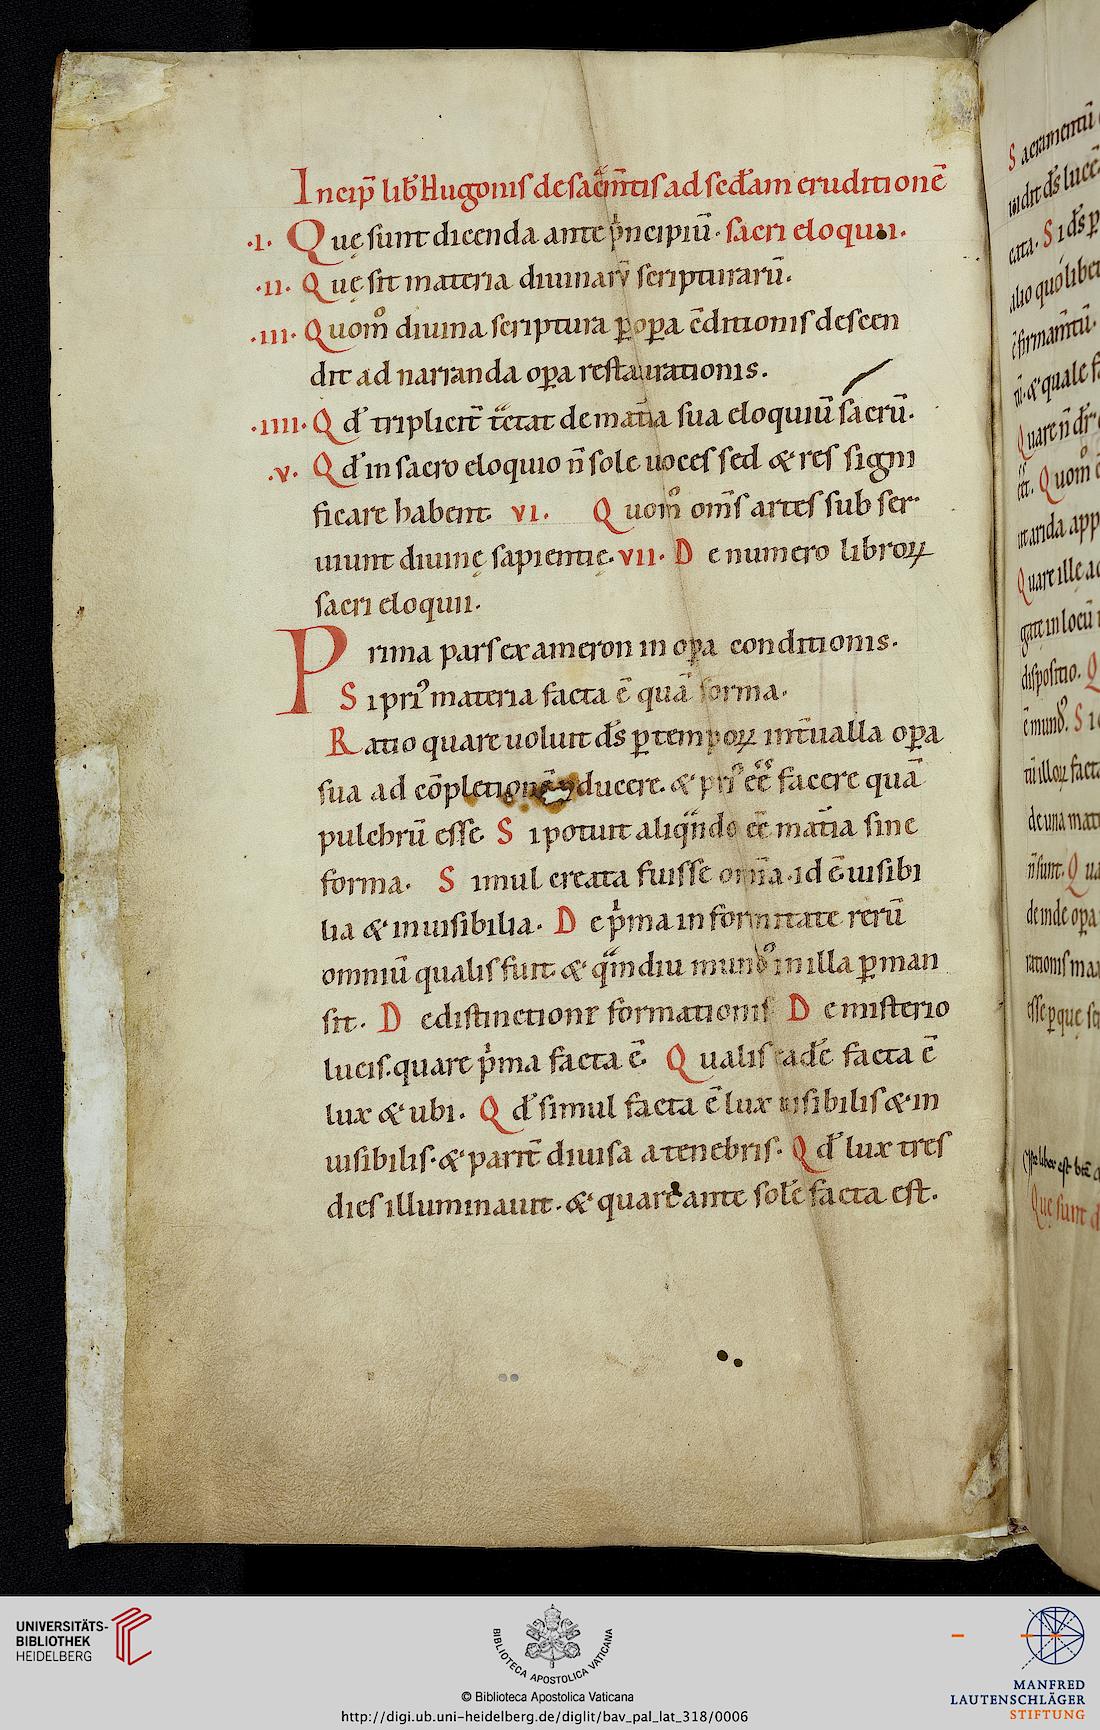 Incip̄ lib̄ Hugonis de sac̄m̄tis ad sed̄am eruditionē
·I· Quę sunt dicenda ante p̍ncipiū· sacri eloquii·
·II· Quę sit materia diuinarū scripturarū·
·III· Quom̊ diuina scriptura ꝑ oꝑa c̄ditionis descen
dit ad narranda oꝑa restaurationis·
·IIII· Qd̄ triplicit̄ t̄ctat de mat̄ia sua eloquiū sacrū·
·V· Qd̄ in sacro eloquio n̄ sole uoces sed & res signi
ficare habent· VI· Quom̊ om̄s artes sub ser
uiunt diuinę sapientię· VII· De numero libroꝝ
sacri eloquii·
Prima pars exameron in oꝑa conditionis·
Si pri᷒ materia facta ē quā forma·
Ratio quare uoluit d̄s ꝑ tempoꝝ int̄ualla oꝑa
sua ad cōpletionē ducere· & pri᷒ eē facere quā
pulchrū esse· Si potuit aliqn̄do eē mat̄ia sine
forma· Simul creata fuisse om̄ia· id ē uisibi
lia & inuisibilia· De p̍ma informitate rerū
omniū qualis fuit & qͣmdiu mundo in illa ꝑman
sit· De distinctione formationis De misterio
lucis· quare p̍ma facta ē· Qualis eadē facta ē
lux & ubi· Qd̄ simul facta ē lux uisibilis & in
uisibilis· & parit̄ diuisa a tenebris· Qd̄ lux tres
dies illuminauit· & quare ante solē facta est·
Sacramentū
uidit d̄s lucē
cata· Si d̄s
alio quolibet
ē firmam̄tū·
& quale
Quare n̄ d̄r
Quom̊
ut arida app
Quare illę
in locū
dispositio·
ē mund᷒· Si
illoꝝ facta
de una mat
n̄ sunt· Qu
deinde oꝑa
rationis
esse ꝑ quę
Iste liber est
Quę sunt
UNIVERSITÄTS-
BIBLIOTHEK
HEIDELBERG
BIBLIOTECA APOSTOLICA VATICANA
© Biblioteca Apostolica Vaticana
http://digi.ub.uni-heidelberg.de/diglit/bav_pal_lat_318/0006
MANFRED
LAUTENSCHLÄGER
STIFTUNG